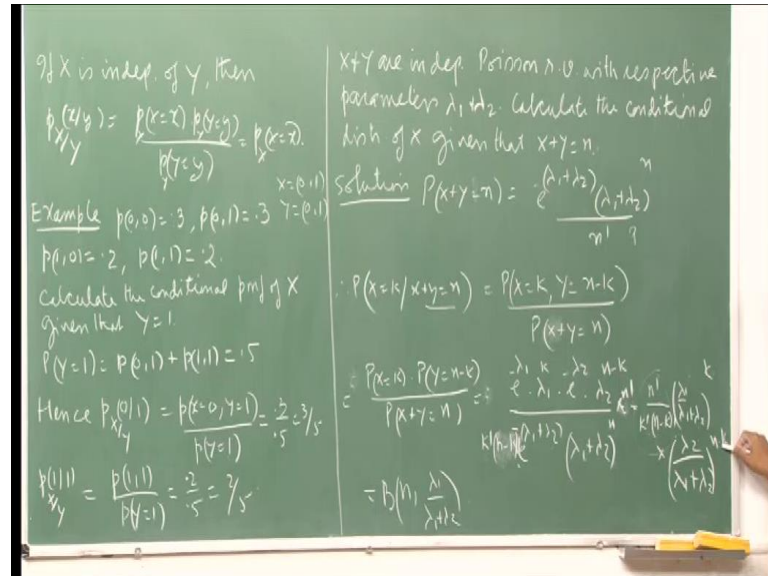 If X is indep. of Y, then
p_{X/Y}(x/y) = p_X(X=x) p_Y(Y=y) / p_Y(Y=y) = p_X(X=x).
X=(0,1)
Y=(0,1)
Example p(0,0)=.3, p(0,1)=.3
p(1,0)=.2, p(1,1)=.2.
Calculate the conditional pmf of X
given that Y=1.
P(Y=1)= p(0,1)+p(1,1)=.5
Hence p_{X/Y}(0|1) = p(X=0,Y=1) / p(Y=1) = .3/.5 = 3/5
p_{X/Y}(1|1) = p(1,1) / p(Y=1) = .2/.5 = 2/5.
X+Y are indep. Poisson r.v. with respective
parameters λ1+λ2. Calculate the conditional
distn of X given that X+Y=n.
Solution P(X+Y=n) = e^{-(λ1+λ2)} (λ1+λ2)^n / n!
∴ P(X=k/X+Y=n) = P(X=k, Y=n-k) / P(X+Y=n)
= P(X=k).P(Y=n-k) / P(X+Y=n) = e^{-λ1} . λ1^k . e^{-λ2} . λ2^{n-k} n! / k!(n-k)! e^{-(λ1+λ2)} (λ1+λ2)^n = n! / k!(n-k)! (λ1/(λ1+λ2))^k
x (λ2/(λ1+λ2))^{n-k}
= B(n, λ1/(λ1+λ2))